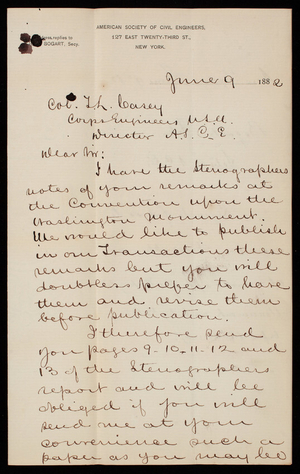 AMERICAN SOCIETY OF CIVIL ENGINEERS.
127 EAST TWENTY-THIRD ST.,
NEW YORK.
replies to
BOGART, Secy.
June 9 1882
Col. T. L. Casey
Corps Engineers U.S.A.
Director A.S.C.E.
Dear Sir:
I have the Stenographers
notes of your remarks at
the Convention upon the
Washington Monument.
We would like to publish
in our Transactions these
remarks but you will
doubtless prefer to have
them and revise them
before publication.
I therefore send
you pages 9-10-11-12 and
13 of the Stenographers
report and will be
obliged if you will
send me at your
convenience such a
paper as you may be